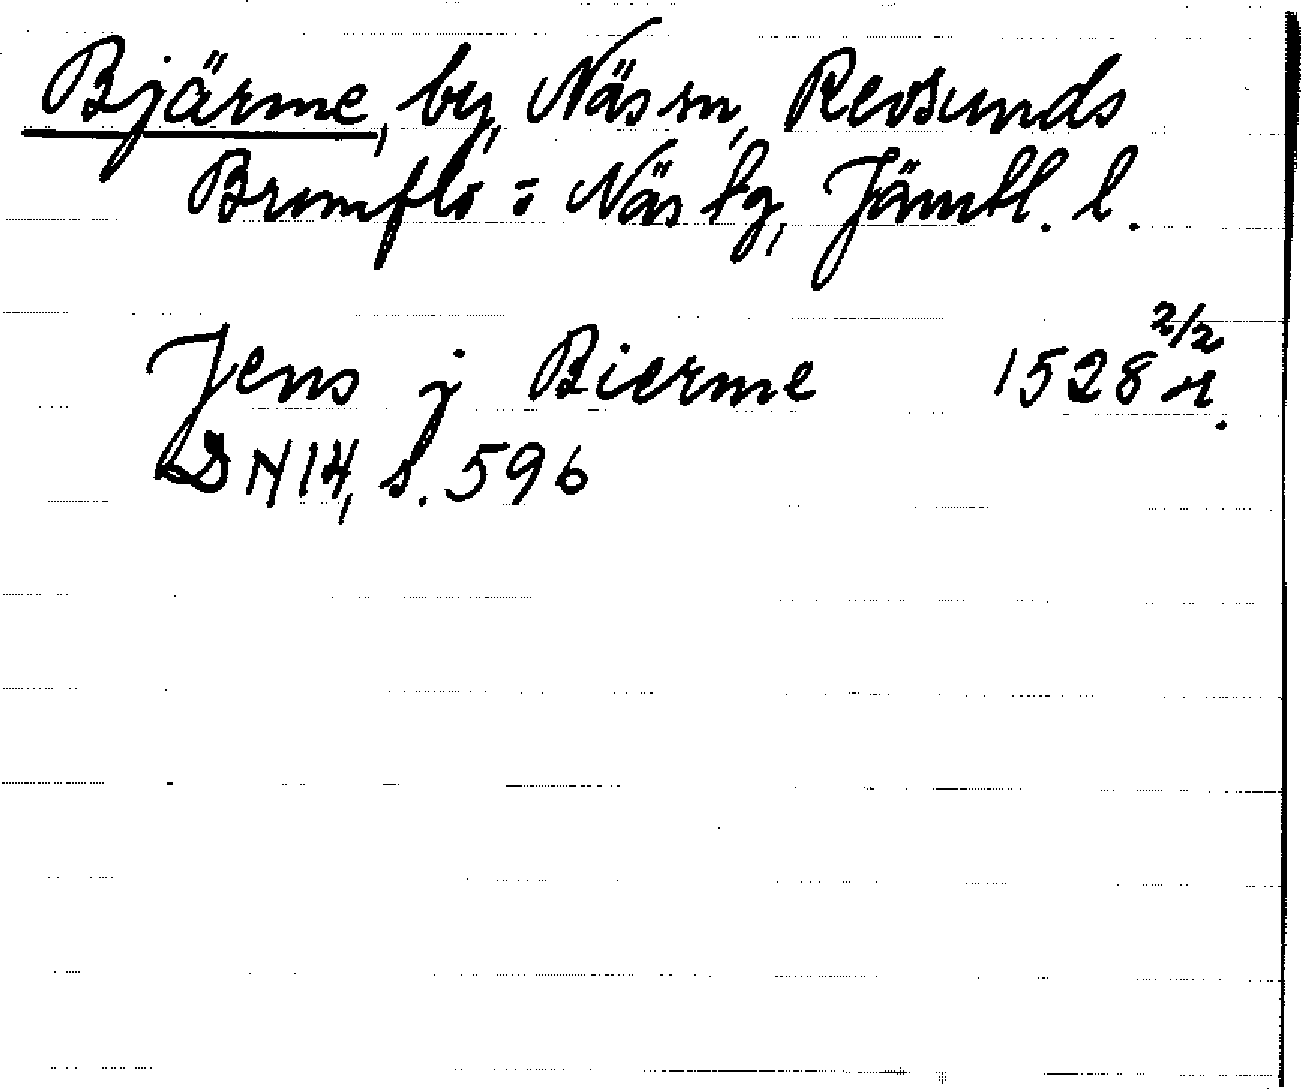 Bjärme, by, Näs sn, Revsunds
Brunflo = Näs tg, Jämtl. l.
Jens j Bierme 1528 2/2
DN 14, s. 596